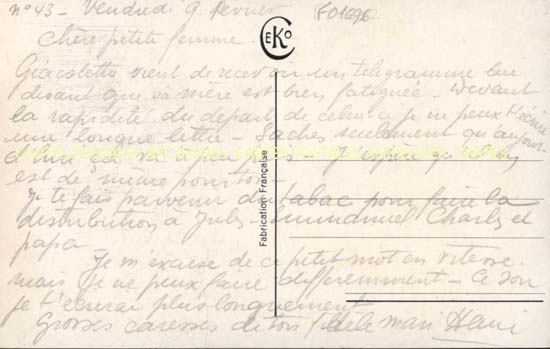 n° 43 - Vendredi 9 Fevrier
F01696
Chère petite femme
CEKO
Giacoletto vient de recevoir un telegramme lui
disant que sa mère est bien fatiguée - Devant
la rapidité du départ de celui-ci je ne peux t'écrire
une longue lettre - Saches seulement qu'aujour
d'hui
est de même pour toi -
Je te fais parvenir du tabac pour faire la
distribution à Jules Emmanuel Charles et
papa
Je m'excuse de ce petit mot en vitesse
mais je ne peux faire differemment - Ce soir
je t'écrirai plus longuement
Grosses caresses de ton fidèle mari Henri
Fabrication Française